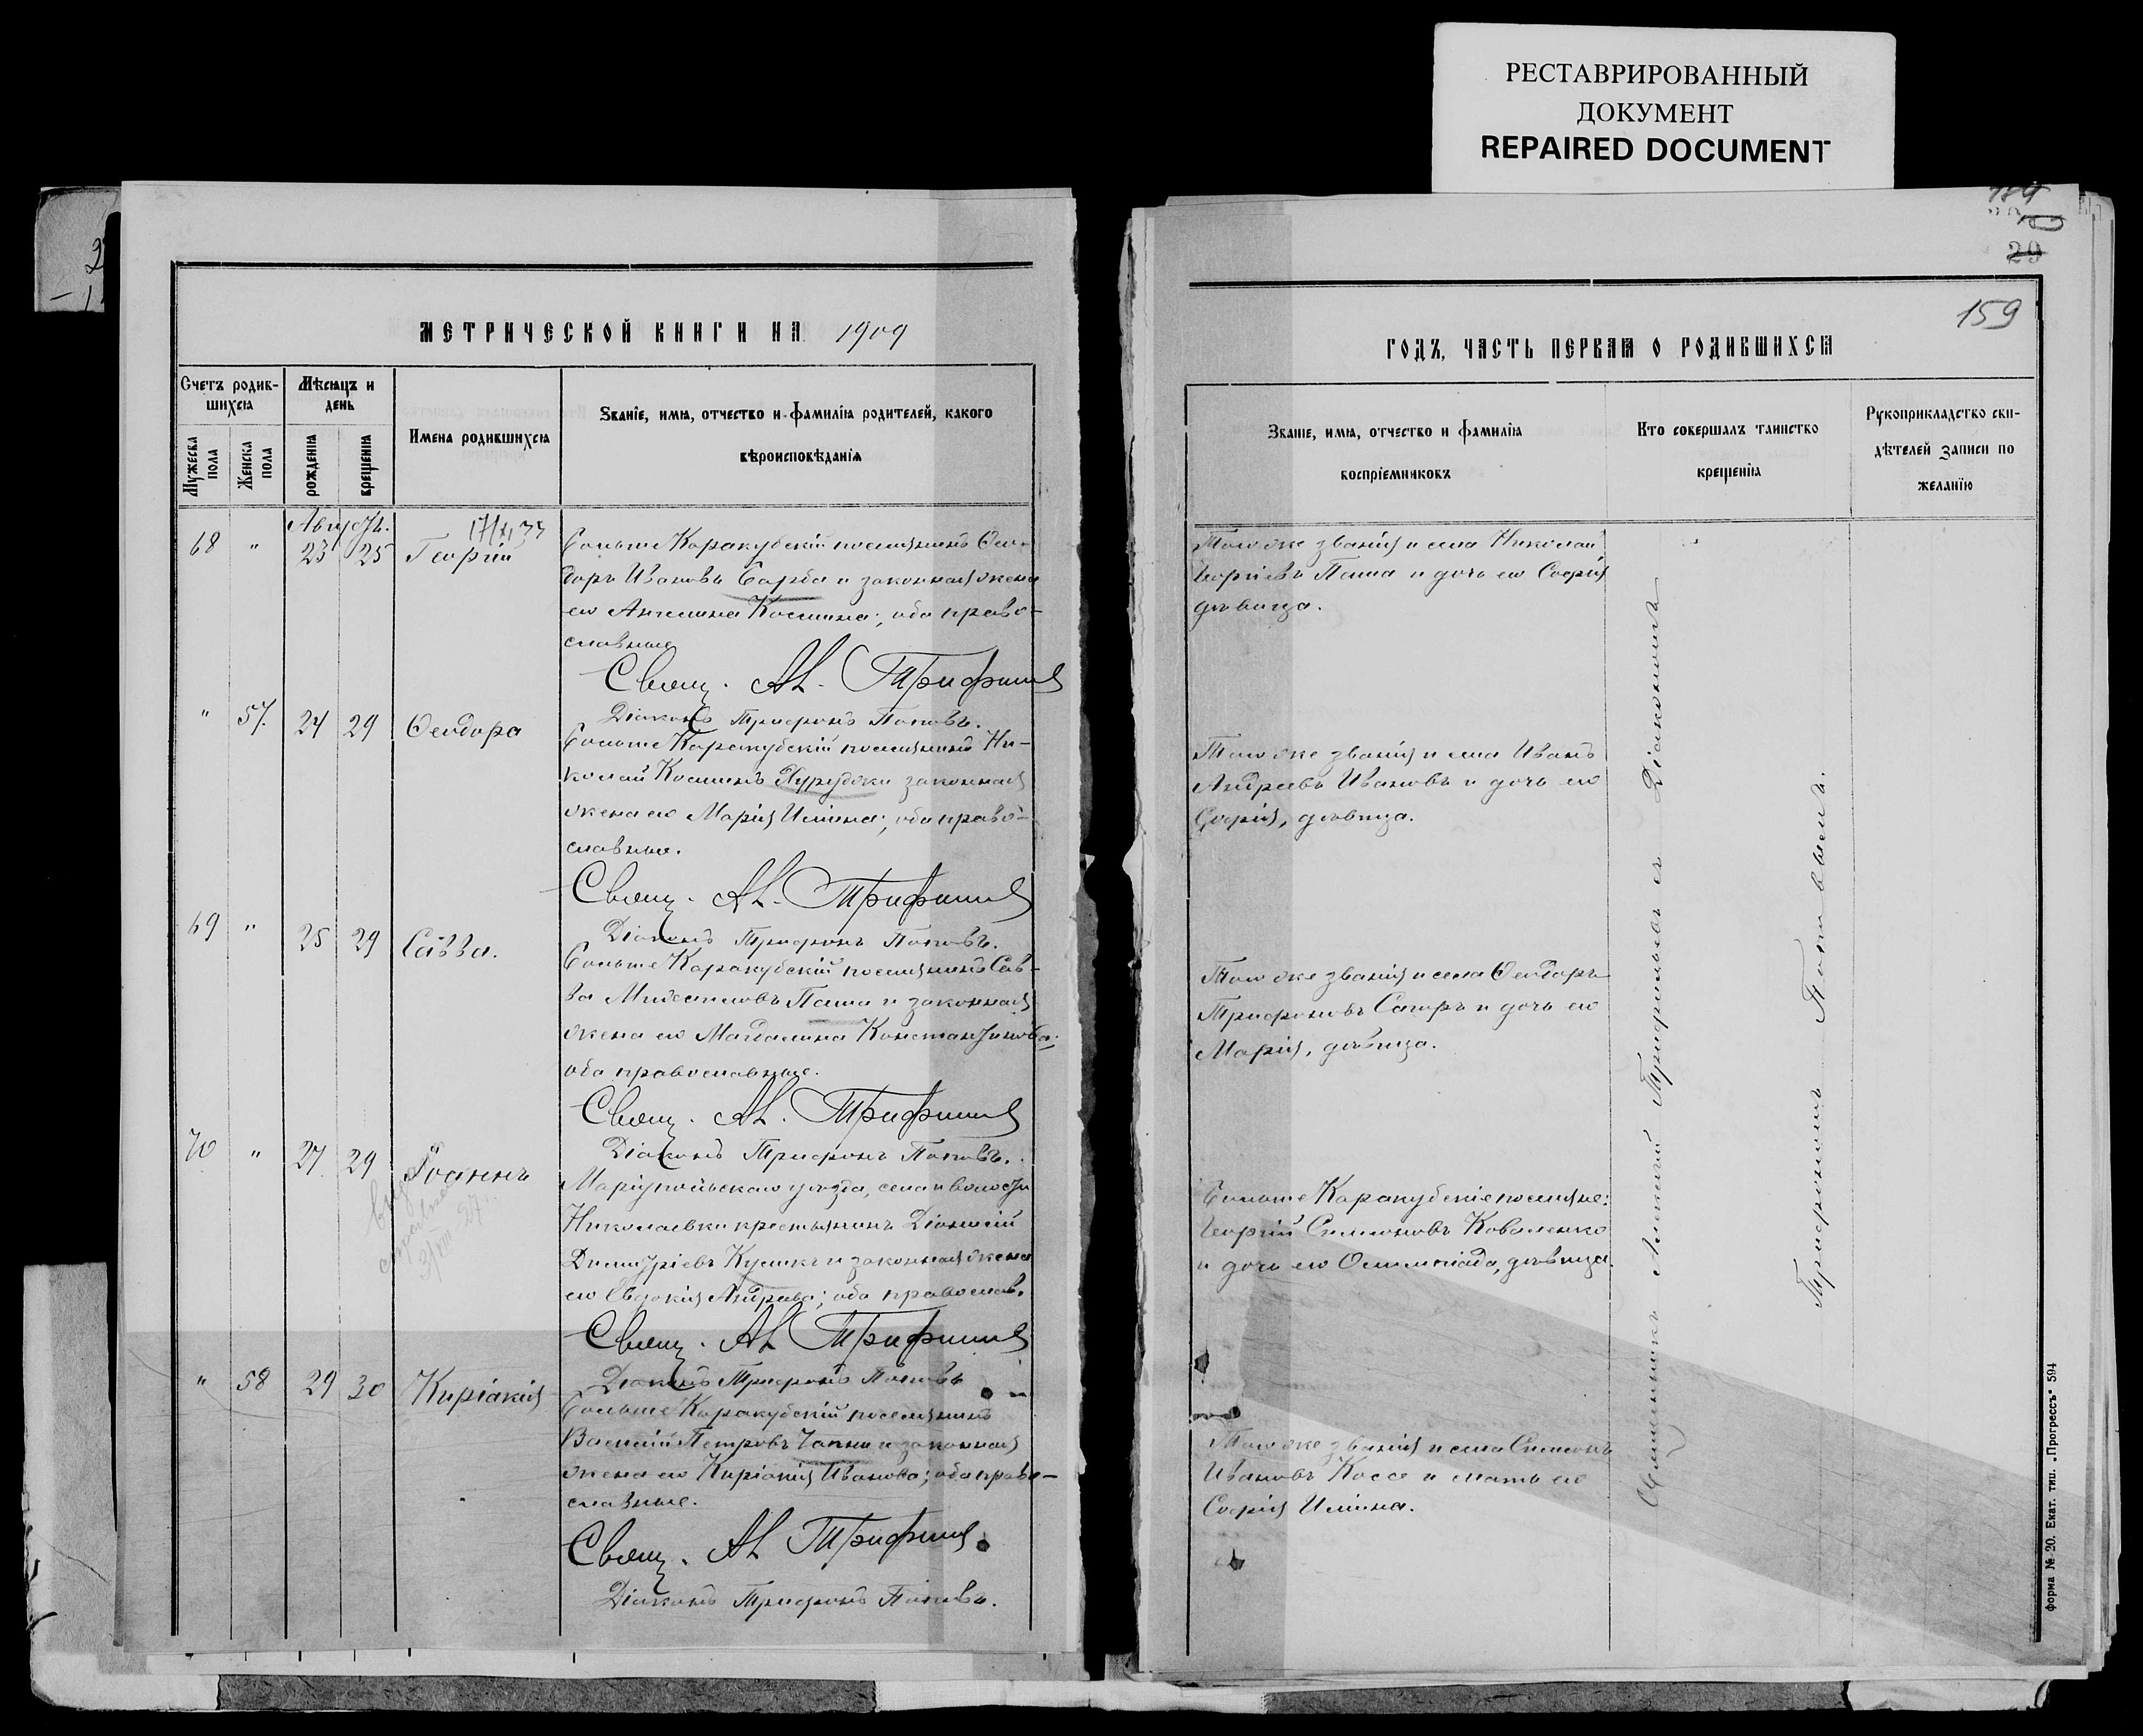 РЕСТАВРИРОВАННЫЙ
ДОКУМЕНТ
REPAIRED DOCUMENT
МЕТРИЧЕСКОЙ КНИГИ НА 1909
Счетъ родив-
шихся
Мѣсяцъ и
день
Имена родившихся
Званіе, имя, отчество и фамилія родителей, какого
вѣроисповѣданія
Мужеска
пола
Женска
пола
рожденія
крещенія
Августъ.
68 " 23 25 Георгій
Больше Каракубскій поселянинъ Ѳео-
доръ Ивановъ Барба и законная жена
его Ангелина Космина; оба право-
славные
Свящ. Ал. Трифильевъ
Діаконъ Трифонъ Поповъ.
" 57. 24 29 Ѳеодора
Больше Каракубскій поселянинъ Ни-
колай Косминъ и законная
жена его Марія Иліина; оба право-
славные.
Свящ. Ал. Трифильевъ
Діаконъ Трифонъ Поповъ.
69 " 25 29 Савва.
Больше Каракубскій поселянинъ Сав-
ва Паша и законная
жена его Магдалина Константинова;
оба православные.
Свящ. Ал. Трифильевъ
Діаконъ Трифонъ Поповъ.
70 " 27 29 Іоаннъ
Маріупольскаго уѣзда, села и волости
Николаевки крестьянинъ Діонисій
Димитріевъ и законная жена
его Евдокія Андреева; оба православ.
Свящ. Ал. Трифильевъ
Діаконъ Трифонъ Поповъ
" 58 29 30 Киріакія
Больше Каракубскій поселянинъ
Василій Петровъ и законная
жена его Киріакія Иванова; оба право-
славные.
Свящ. Ал. Трифильевъ
Діаконъ Трифонъ Поповъ.
29
159
ГОДЪ, ЧАСТЬ ПЕРВАЯ О РОДИВШИХСЯ
Званіе, имя, отчество и фамилія
воспріемниковъ
Кто совершалъ таинство
крещенія
Рукоприкладство сви-
дѣтелей записи по
желанію
Того же званія и села Николай
Георгіевъ Паша и дочь его Софія
дѣвица.
Того же званія и села Иванъ
Андреевъ Ивановъ и дочь его
Софія, дѣвица.
Того же званія и села Ѳеодоръ
Трифоновъ Сагиръ и дочь его
Марія, дѣвица.
Больше Каракубскіе поселяне:
Георгій Симоновъ Коваленко
и дочь его Олимпіада, дѣвица.
Того же званія и села Симеонъ
Ивановъ Коссе и мать его
Софія Иліина.
Священникъ Алексій Трифильевъ съ Діакономъ
Трифономъ Поповымъ.
Форма № 20. Екат. тип. „Прогрессъ" 594